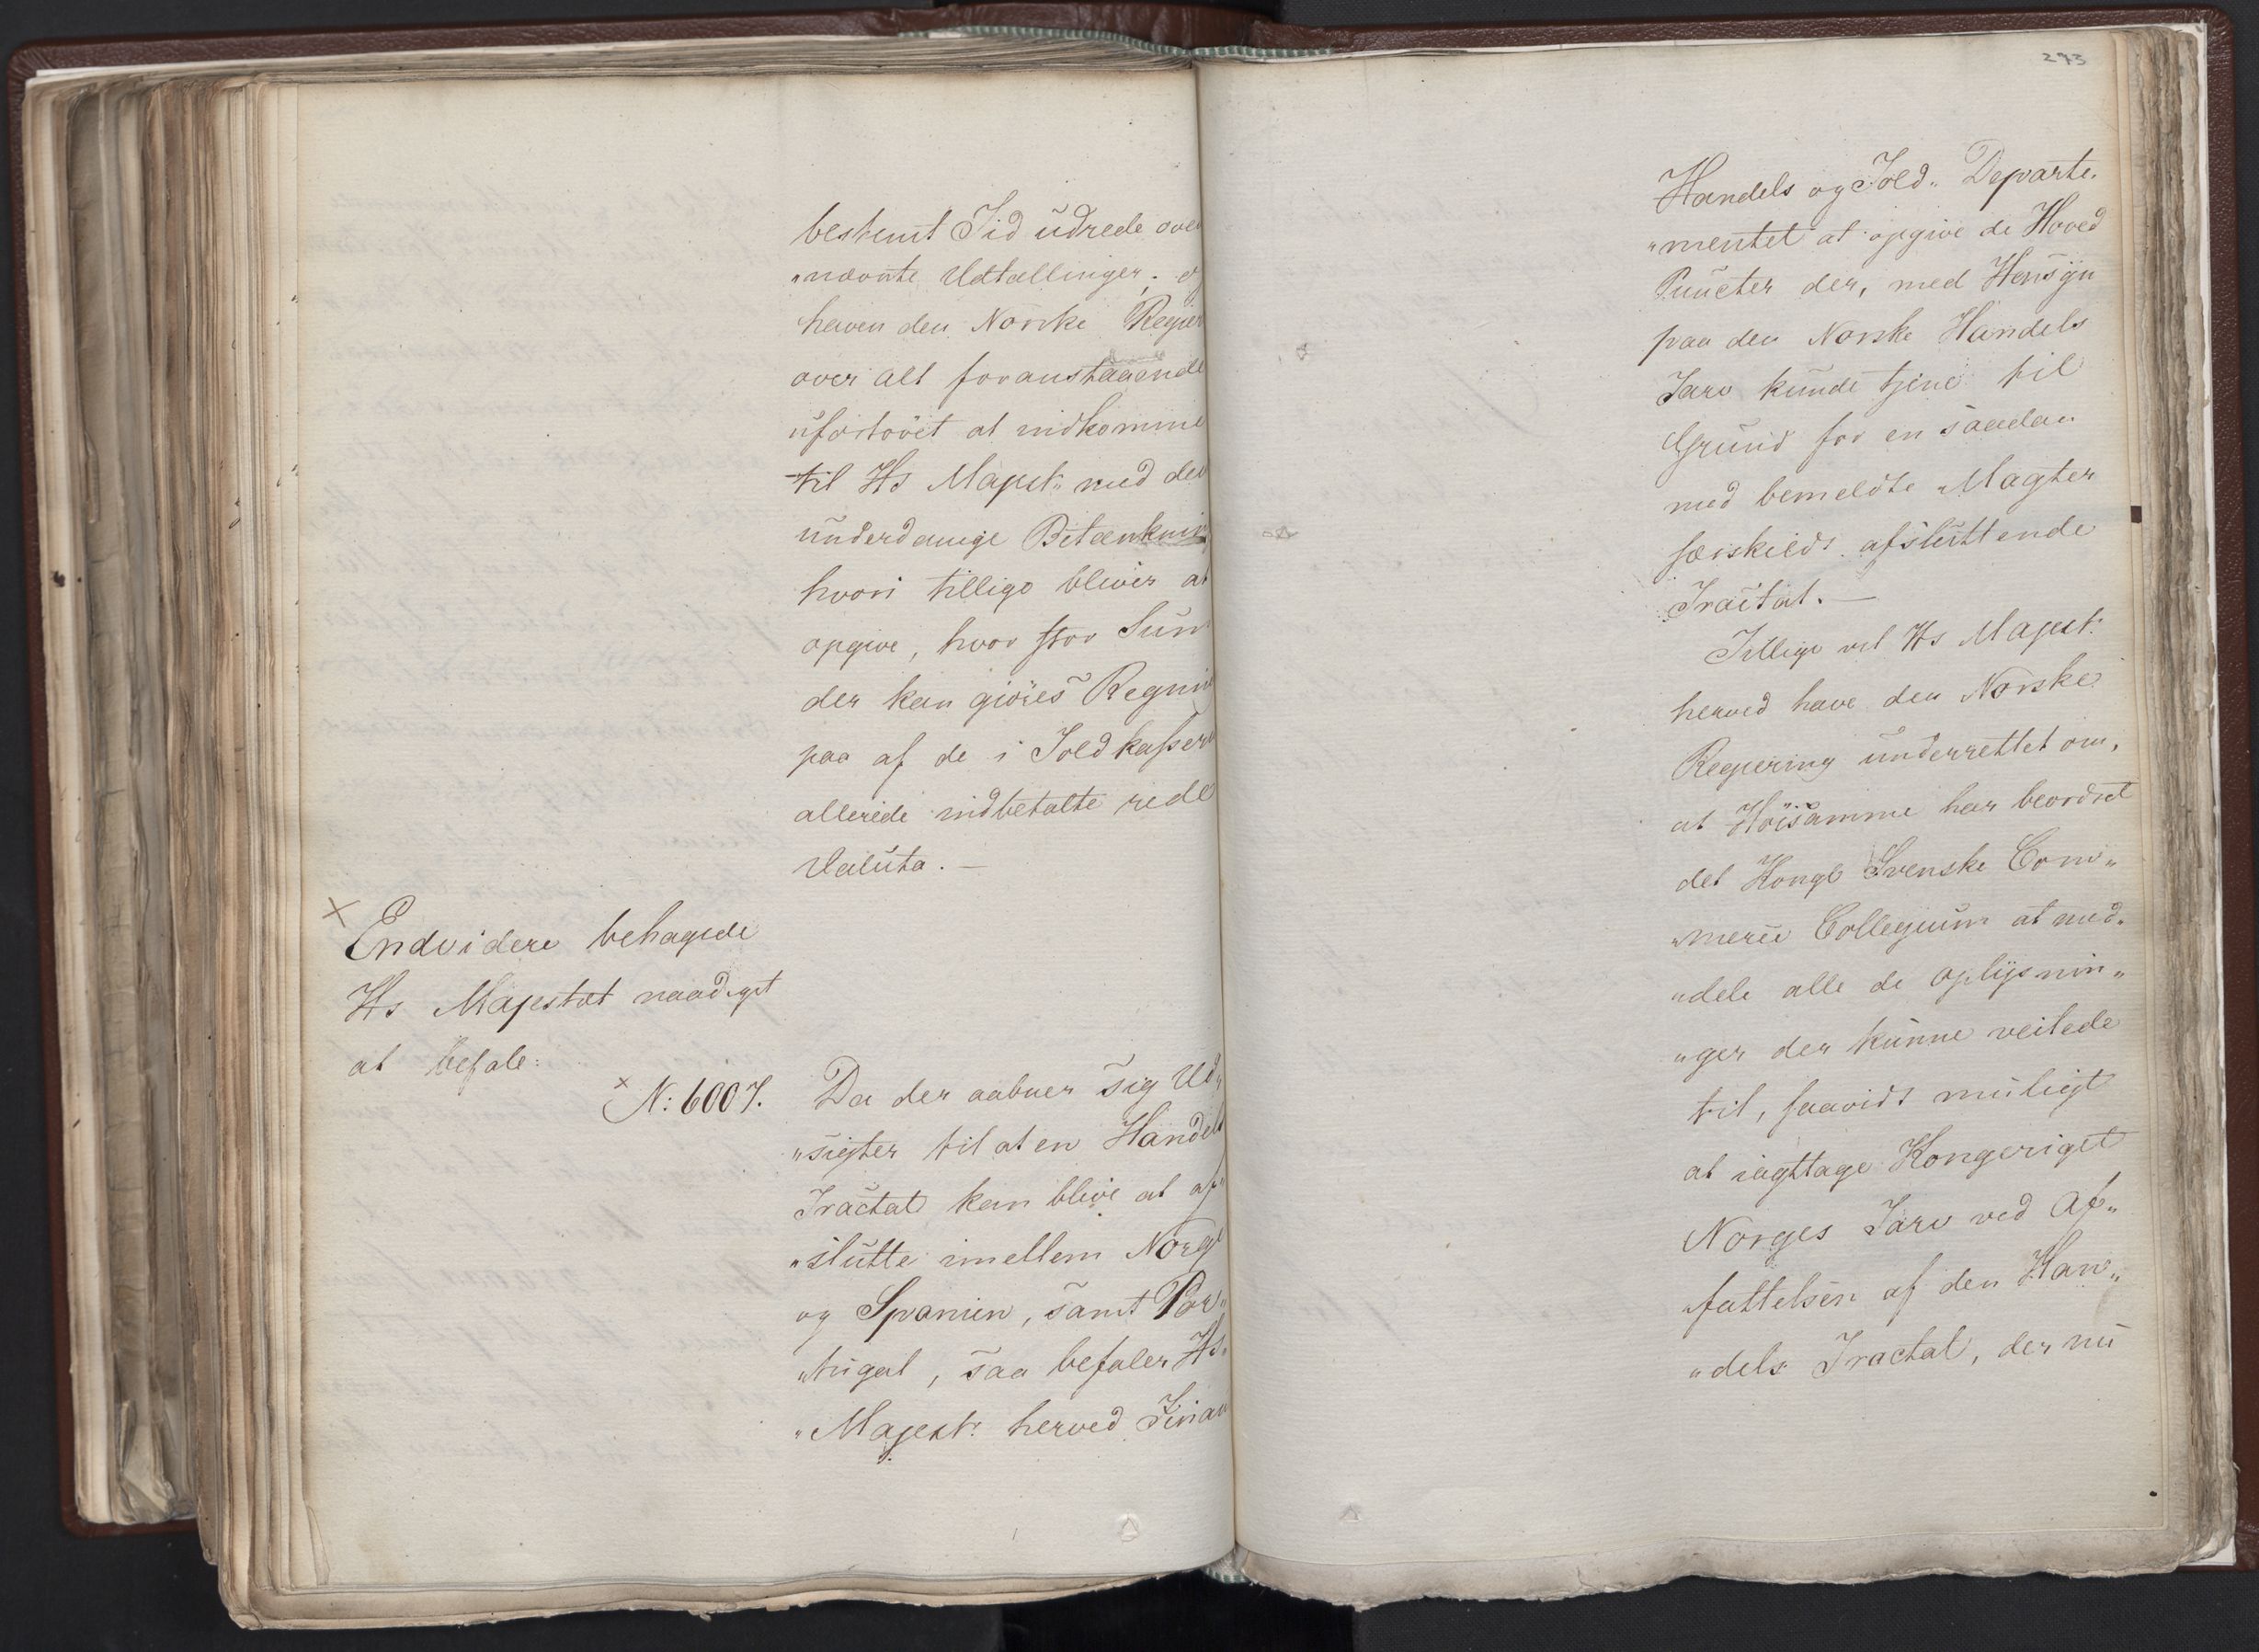 bestemt Tid udrede oven
„nævnte Udtællinger; og
haven den Norske Regier
over alt foranstaaende
ufortövet at indkomme
til Hs Majest: med der
underdanige Betænkning
hvori tillige bliver at
opgive, hvor stor Sum
der kan giöres Regning
paa af de i Toldkassern
allerede indbetalte rede
Valuta. —
× Endvidere behagede
Hs Majestæt naadigst
at befale:
× N: 6007. Da der aabner sig Ud„
„sigter til at en Handels
Tractat kan blive at af„
„slutte imellem Norge
og Spanien, samt Por„
„tugal, saa befaler Hs.
„Majest: herved Finan
273
Handels og Told„ Departe„
„mentet at opgive de Hoved
Puncter der, med Hensyn
paa den Norske Handels
Tarv kunde tjene til
Grund for en saadan
med bemeldte Magter
særskildt afsluttende
Tractat. —
Tillige vil Hs Majest:
herved have den Norske
Regjering underrettet om,
at Höisamme har beordret
det Kongl Svenske Com„
„merce Collegium at med„
„dele alle de oplysnin„
„ger der kunne veilede
til, saavidt muligt
at iagttage Kongeriget
Norges Tarv ved Af„
fattelsen af den Han„
„dels Tractat, der nu